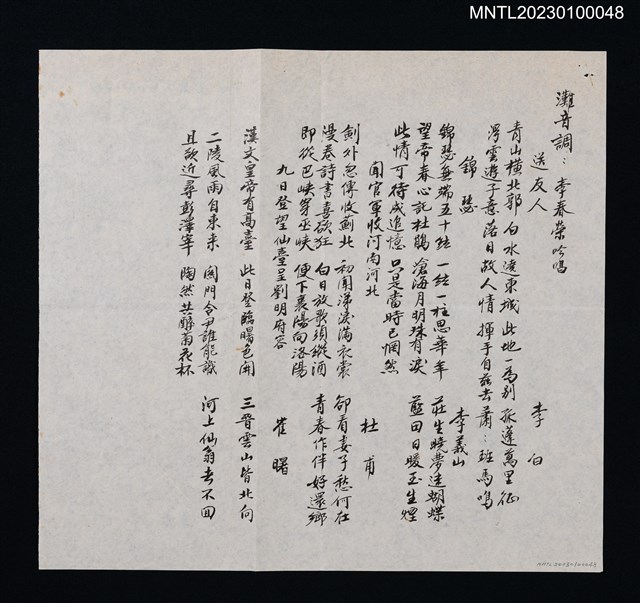 MNTL20230100048
灘音調：李春榮吟唱
送友人 李白
青山橫北郭 白水遶東城 此地一為別 孤蓬萬里征
浮雲遊子意 落日故人情 揮手自茲去 蕭：班馬鳴
錦瑟 李義山
錦瑟無端五十弦 一弦一柱思華年 莊生曉夢迷蝴蝶
望帝春心託杜鵑 滄海月明珠有淚 藍田日暖玉生煙
此情可待成追憶 只是當時已惘然
聞官軍收河南河北 杜甫
劍外忽傳收薊北 初聞涕淚滿衣裳 卻看妻子愁何在
漫卷詩書喜欲狂 白日放歌須縱酒 青春作伴好還鄉
即從巴峽穿巫峽 便下襄陽向洛陽
九日登望仙臺呈劉明府容 崔曙
漢文皇帝有高臺 此日登臨曙色開 三晉雲山皆北向
二陵風雨自東來 關門令尹誰能識 河上仙翁去不回
且欲近尋彭澤宰 陶然共醉菊花杯
MNTL20230100048